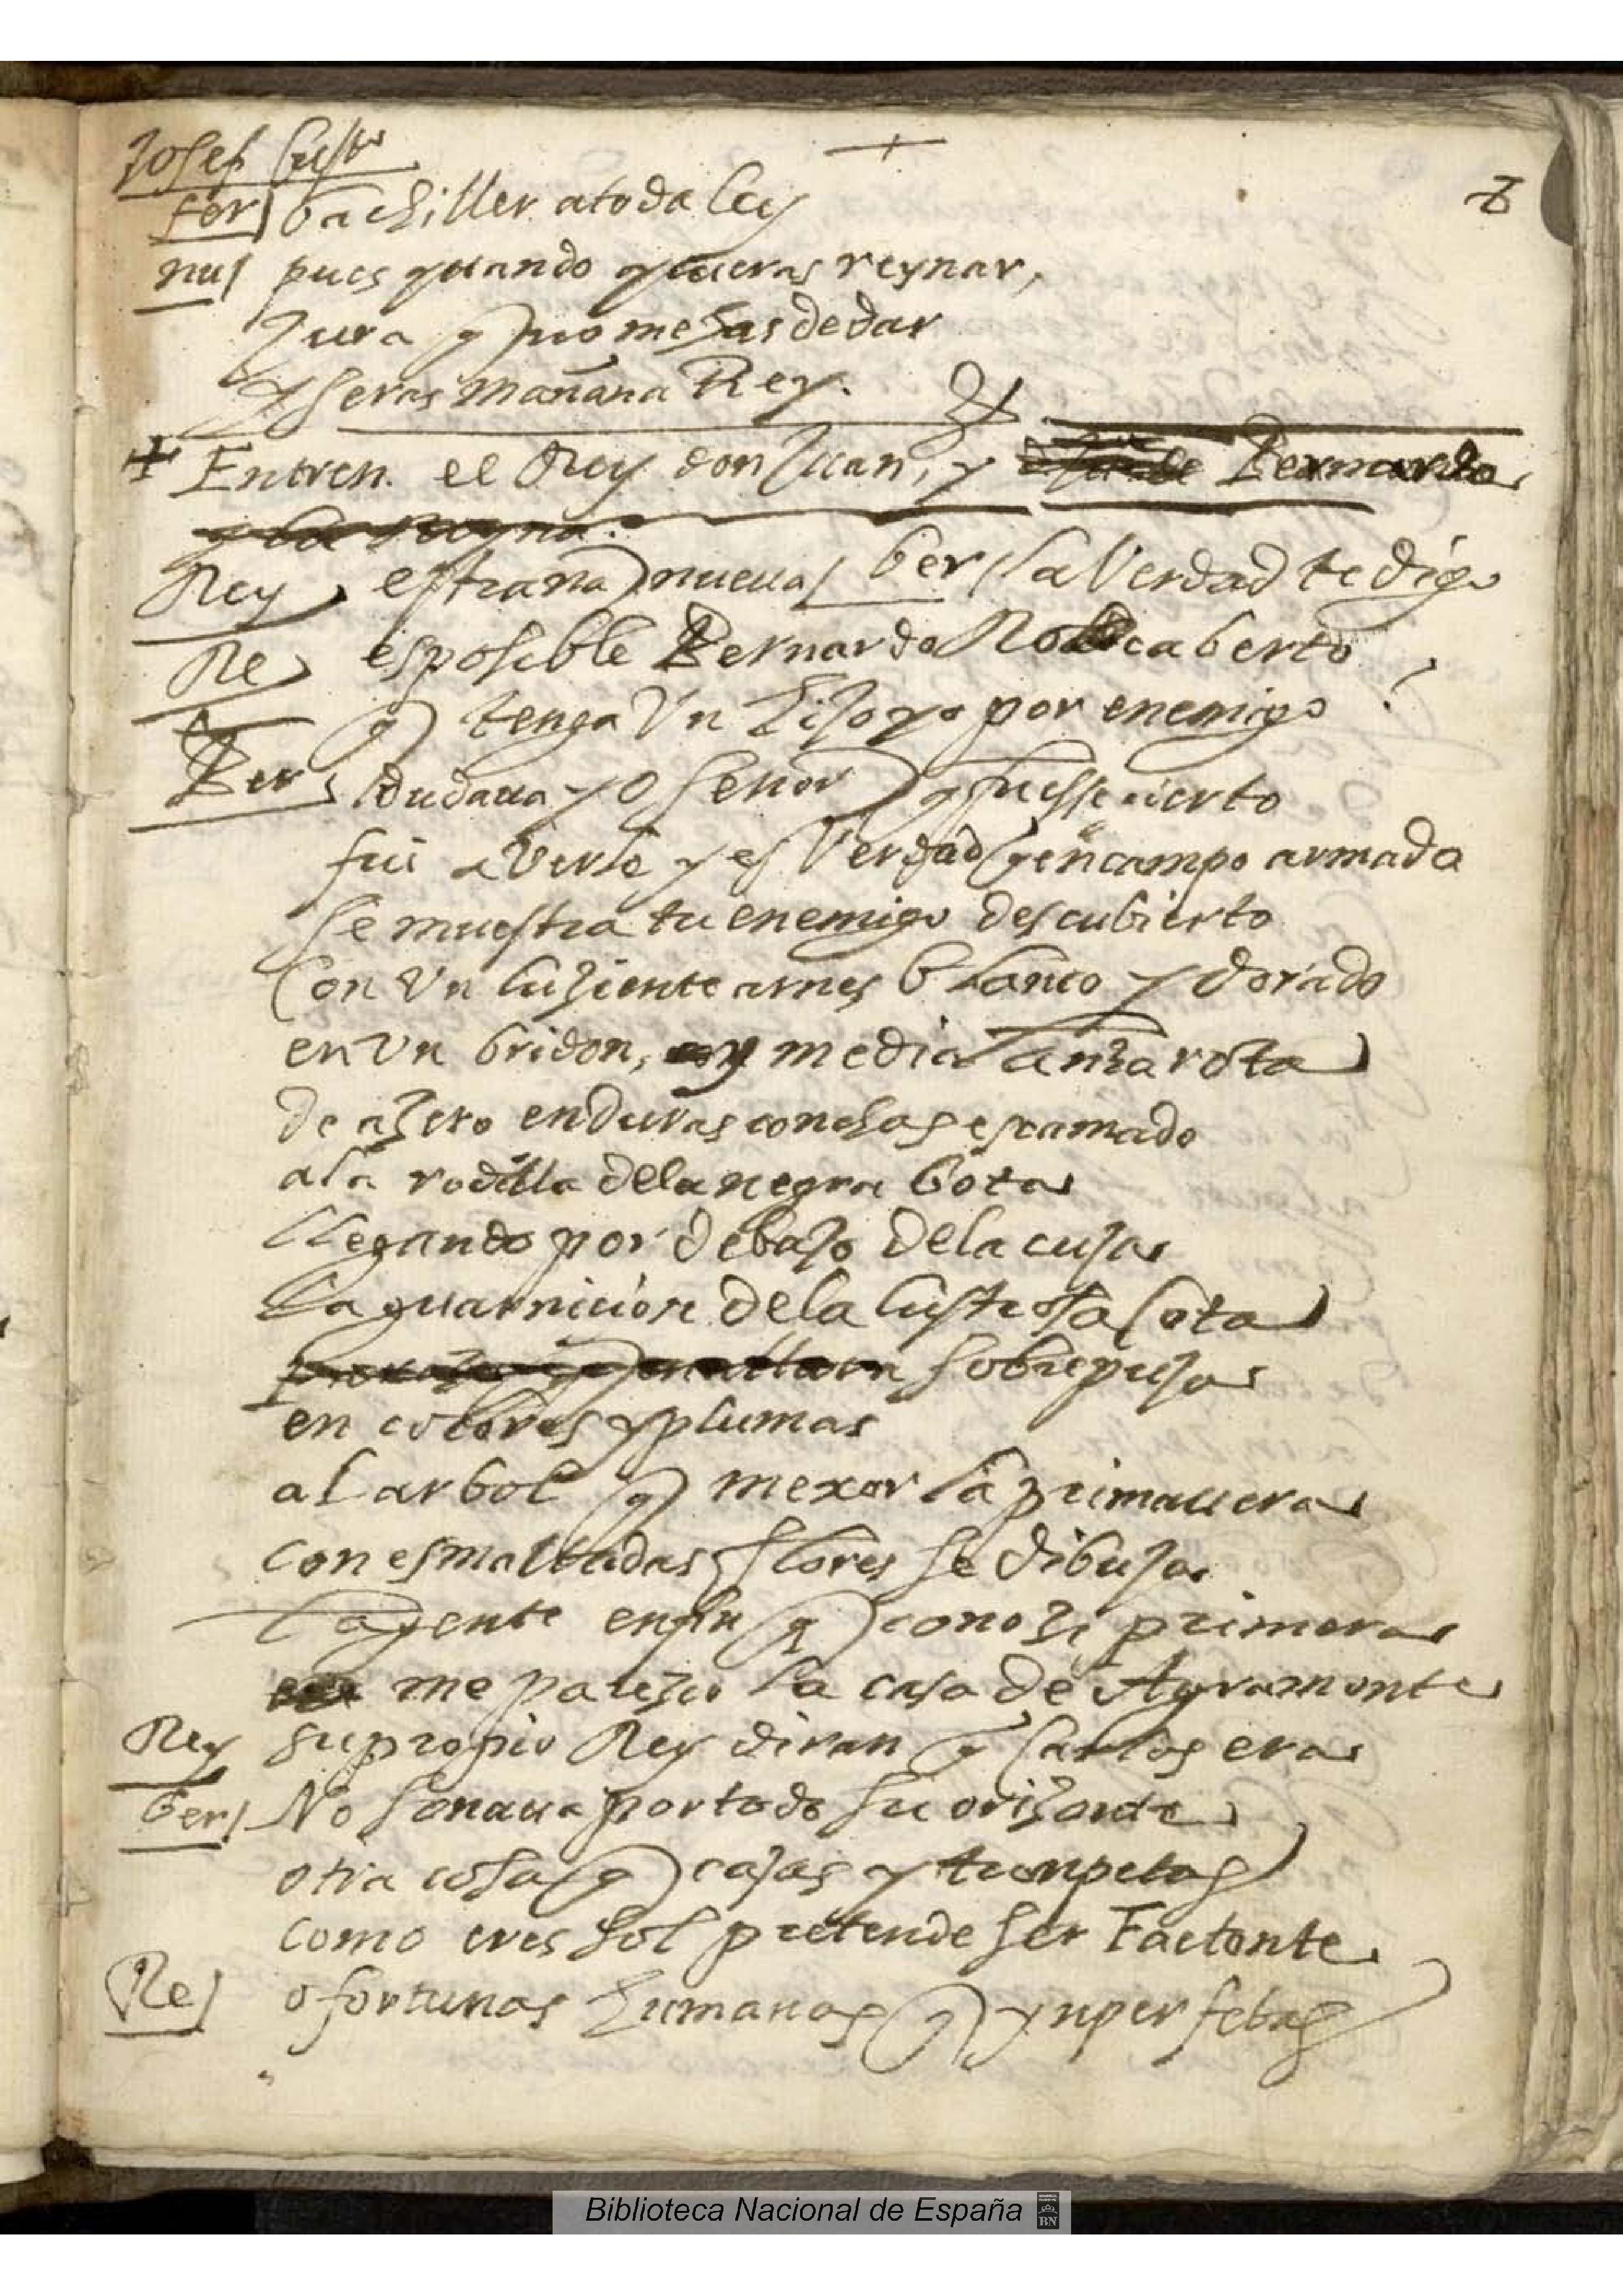 Josef
8
fer bachiller atoda ley
nu pues quando quieras reynar,
Jura q no me has de dar
y seras mañana Rey.
Entren el Rey don Juan, y Bernardo
y la Reyna.
Rey estraña nueua ber la Verdad te digo
Re es posible Bernardo Rocaberto
q tenga Vn hijo yo por enemigo?
Ber dudaua yo señor q fuesse cierto
fui a Verle y es Verdad q en campo armado
se muestra tu enemigo descubierto
Con Vn luziente arnes blanco y dorado
en Vn bridon, y media lanza rota
de azero en duras conchas escamado
ala rodilla dela negra bota
llegando por debajo dela cuja
la guarnicion dela lustrosa cota
sobrepuja
en colores y plumas
al arbol q mexor la primauera
con esmaltadas flores se dibuja
la gente enfin q conozi primera
me parezio la casa de Agramonte
Rey su propio Rey diran q Carlos era
ber No sonaua por todo su orizonte
otra cosa q cajas y tronpetas
como eres sol pretende ser Faetonte
Re o fortunas humanas q ynperfetas
Biblioteca Nacional de España
BN